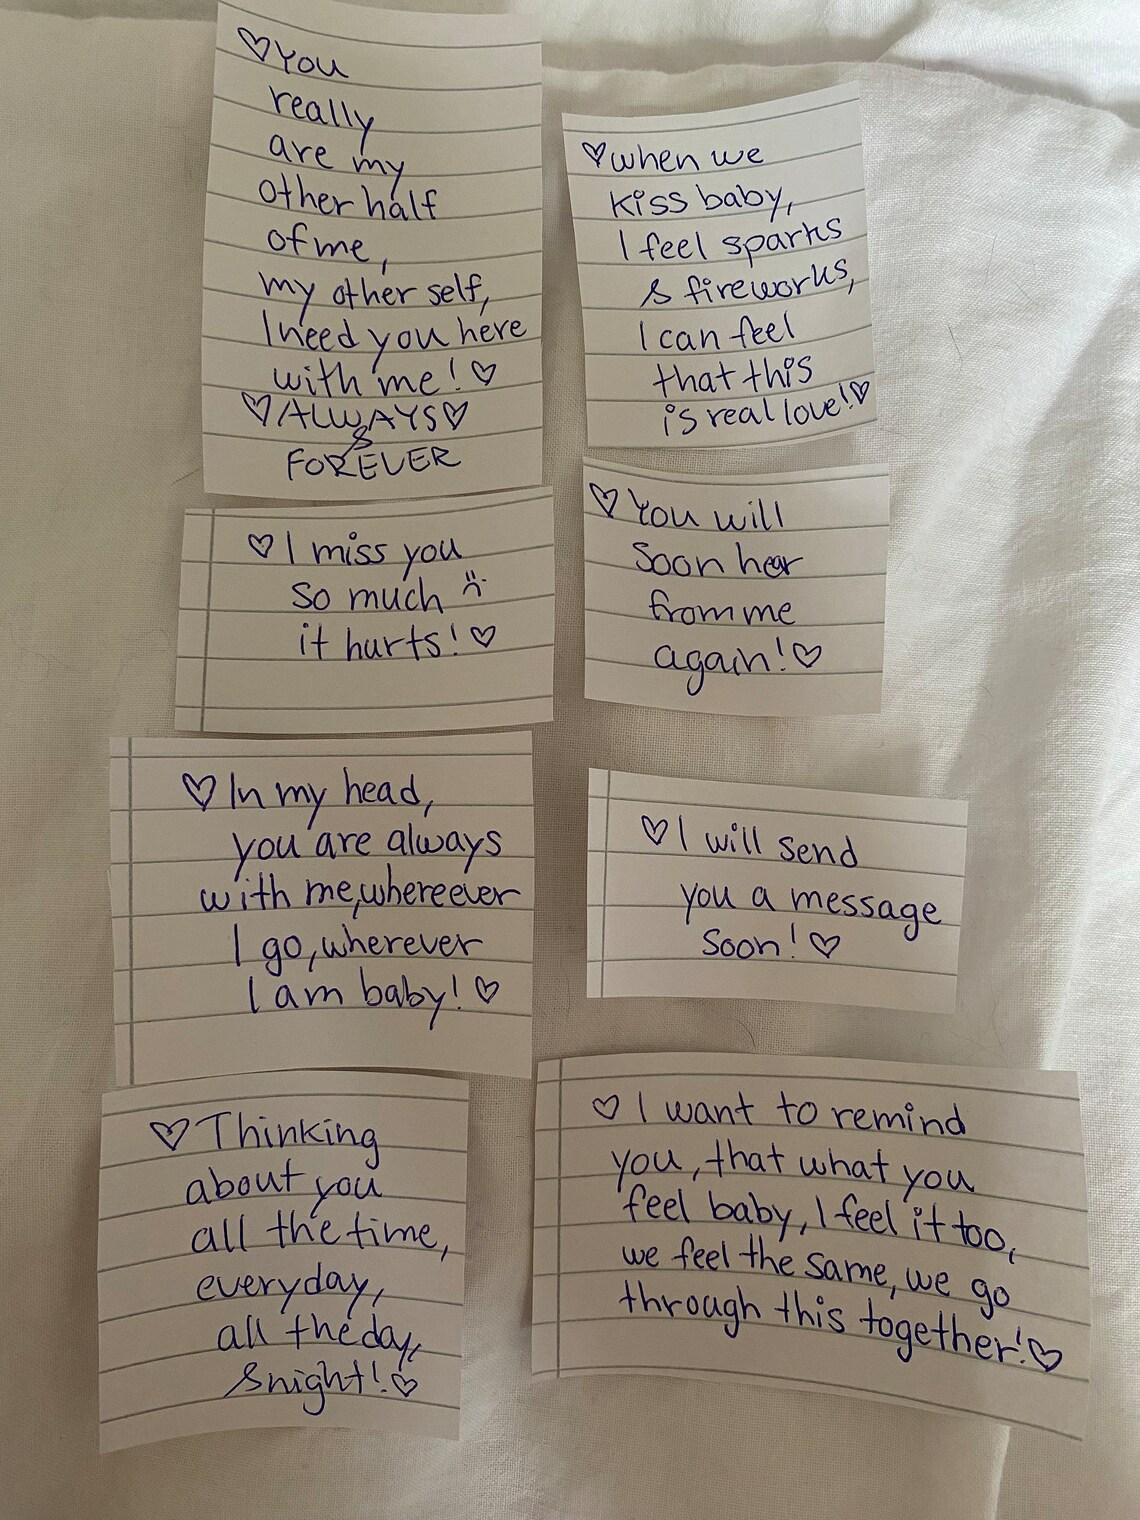 ♡You
really
are my
other half
of me,
my other self,
I need you here
with me! ♡
♡ALWAYS♡
&
FOREVER
♡when we
kiss baby,
I feel sparks
& fireworks,
I can feel
that this
is real love!♡
♡I miss you
so much :(
it hurts!♡
♡You will
soon hear
from me
again!♡
♡In my head,
you are always
with me,whereever
I go,wherever
I am baby!♡
♡I will send
you a message
soon!♡
♡Thinking
about you
all the time,
everyday,
all the day,
&night!♡
♡I want to remind
you, that what you
feel baby, I feel it too,
we feel the same, we go
through this together!♡